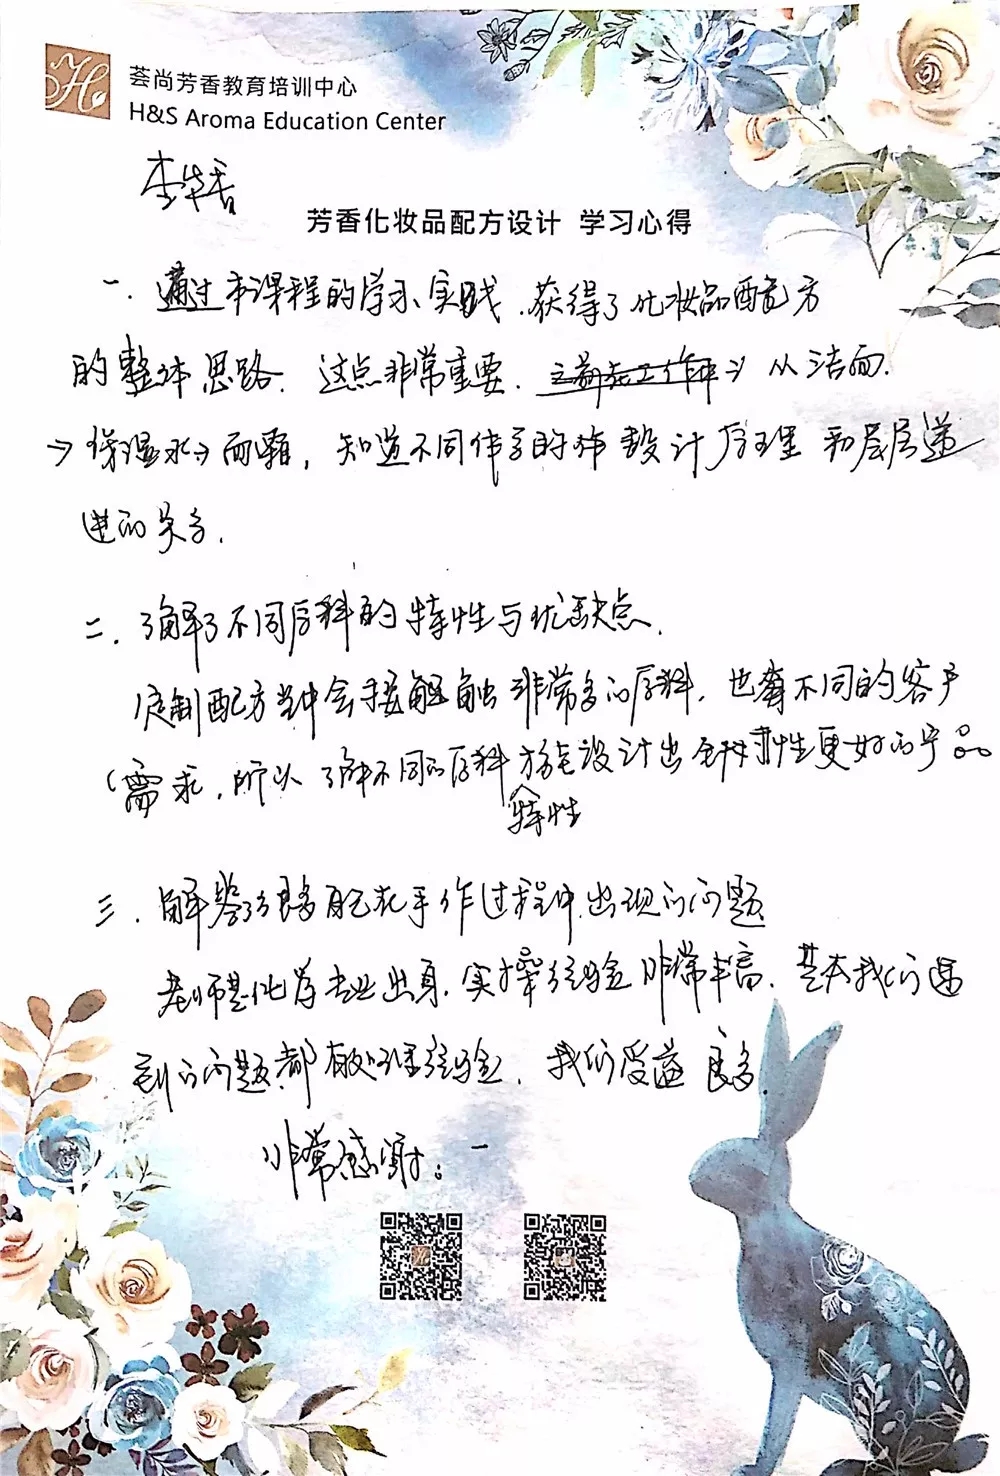 荟尚芳香教育培训中心
H&S Aroma Education Center
李华香
芳香化妆品配方设计 学习心得
一．通过本课程的学习、实践．获得了化妆品配方
的整体思路．这点非常重要． 从洁面．
→保湿水→面霜，知道不同体系的 设计原理 和层层递
进的关系．
二．了解了不同原料的特性与优缺点．
定制配方当中会接触非常多的原料．也有不同的客户
需求．所以了解不同的原料特性方能设计出针对性更好的产品
三．解答了很多配花手作过程中出现的问题
老师是化学专业出身．实操经验非常丰富．基本我们遇
到的问题都有处理经验．我们受益良多．
非常感谢。